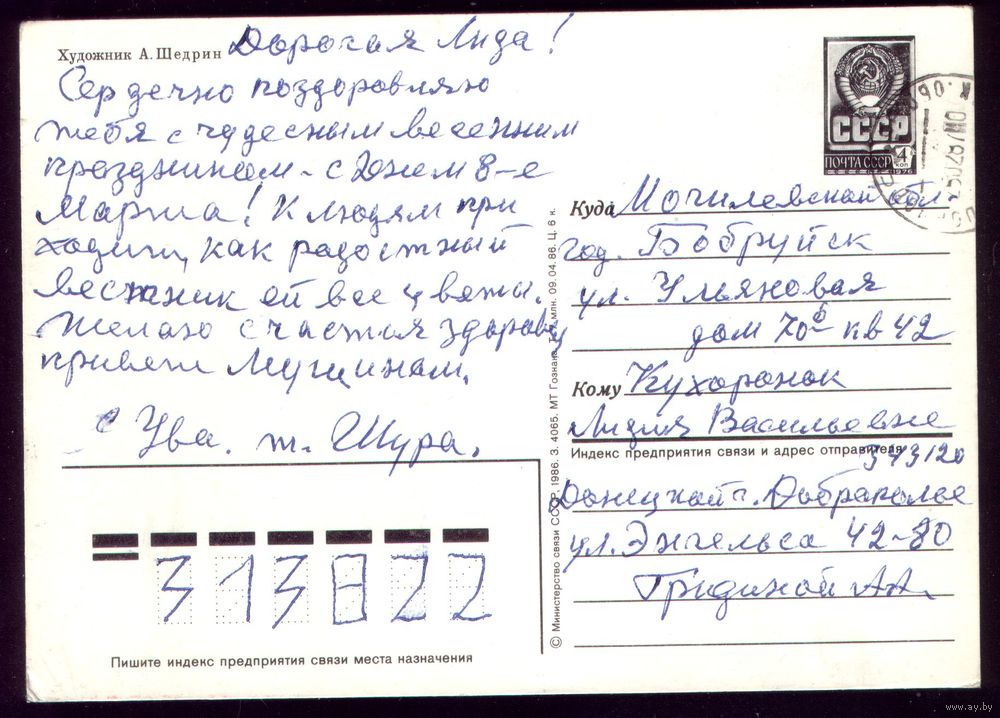 Художник А. Щедрин Дорогая Лида!
Сердечно поздоровляю
тебя с чудесным весенним
праздником - с Днем 8-е
Марта! К людям при
ходит, как радостный
вестник ей все цветы.
Желаю счастья здоровья
привет Мущинам.
с Ува. т. Шура.
СССР
ПОЧТА СССР 4 КОП
1976
Куда Могилевская обл.
год. Бобруйск
ул. Ульяновая
дом 70б кв 42
Кому Кухоронок
Лидия Васильевне
Индекс предприятия связи и адрес отправителя
343120
Донецкой г. Доброполье
ул. Энгельса 42-80
Гридиной А А.
313822
Пишите индекс предприятия связи места назначения
© Министерство связи СССР, 1986. З. 4065. МТ Гознака. млн. 09.04.86. Ц. 6 к.
www.ay.by